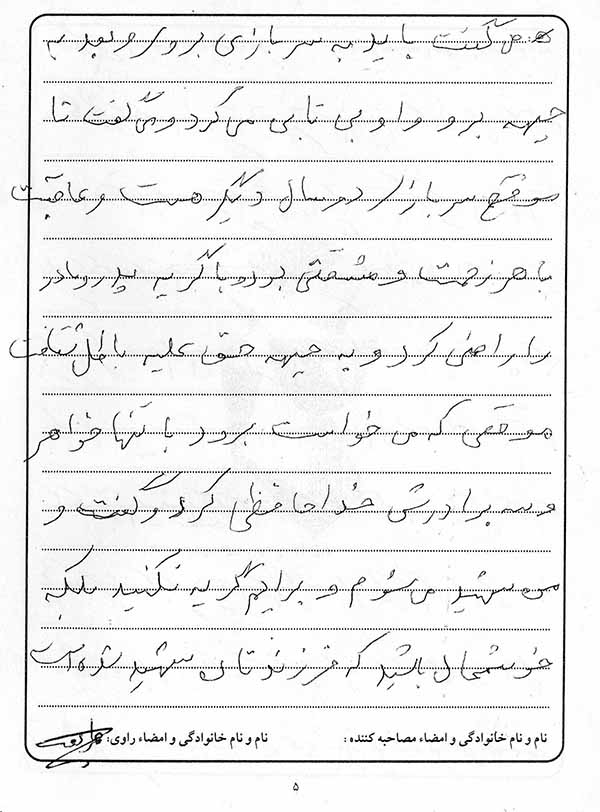 می گفت باید به سربازی بروی و بعد به
جبهه برو و او بی تابی می کرد و می گفت تا
موقع سربازی دو سال دیگر هست و عاقبت
با هر زحمت و مشقتی بود و با گریه پدر و مادر
را راضی کرد و به جبهه حق علیه باطل شتافت
موقعی که می خواست برود با تنها خواهر
و سه برادرش خداحافظی کرد و گفت و
من شهید می شوم و برایم گریه نکنید بلکه
خوشحال باشید که فرزندتان شهید شده است
نام و نام خانوادگی و امضاء مصاحبه کننده :
نام و نام خانوادگی و امضاء راوی:
۵